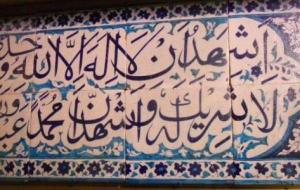 اشهدان لا اله الا الله وحده
لا شريك له واشهدان محمدا عبده ور